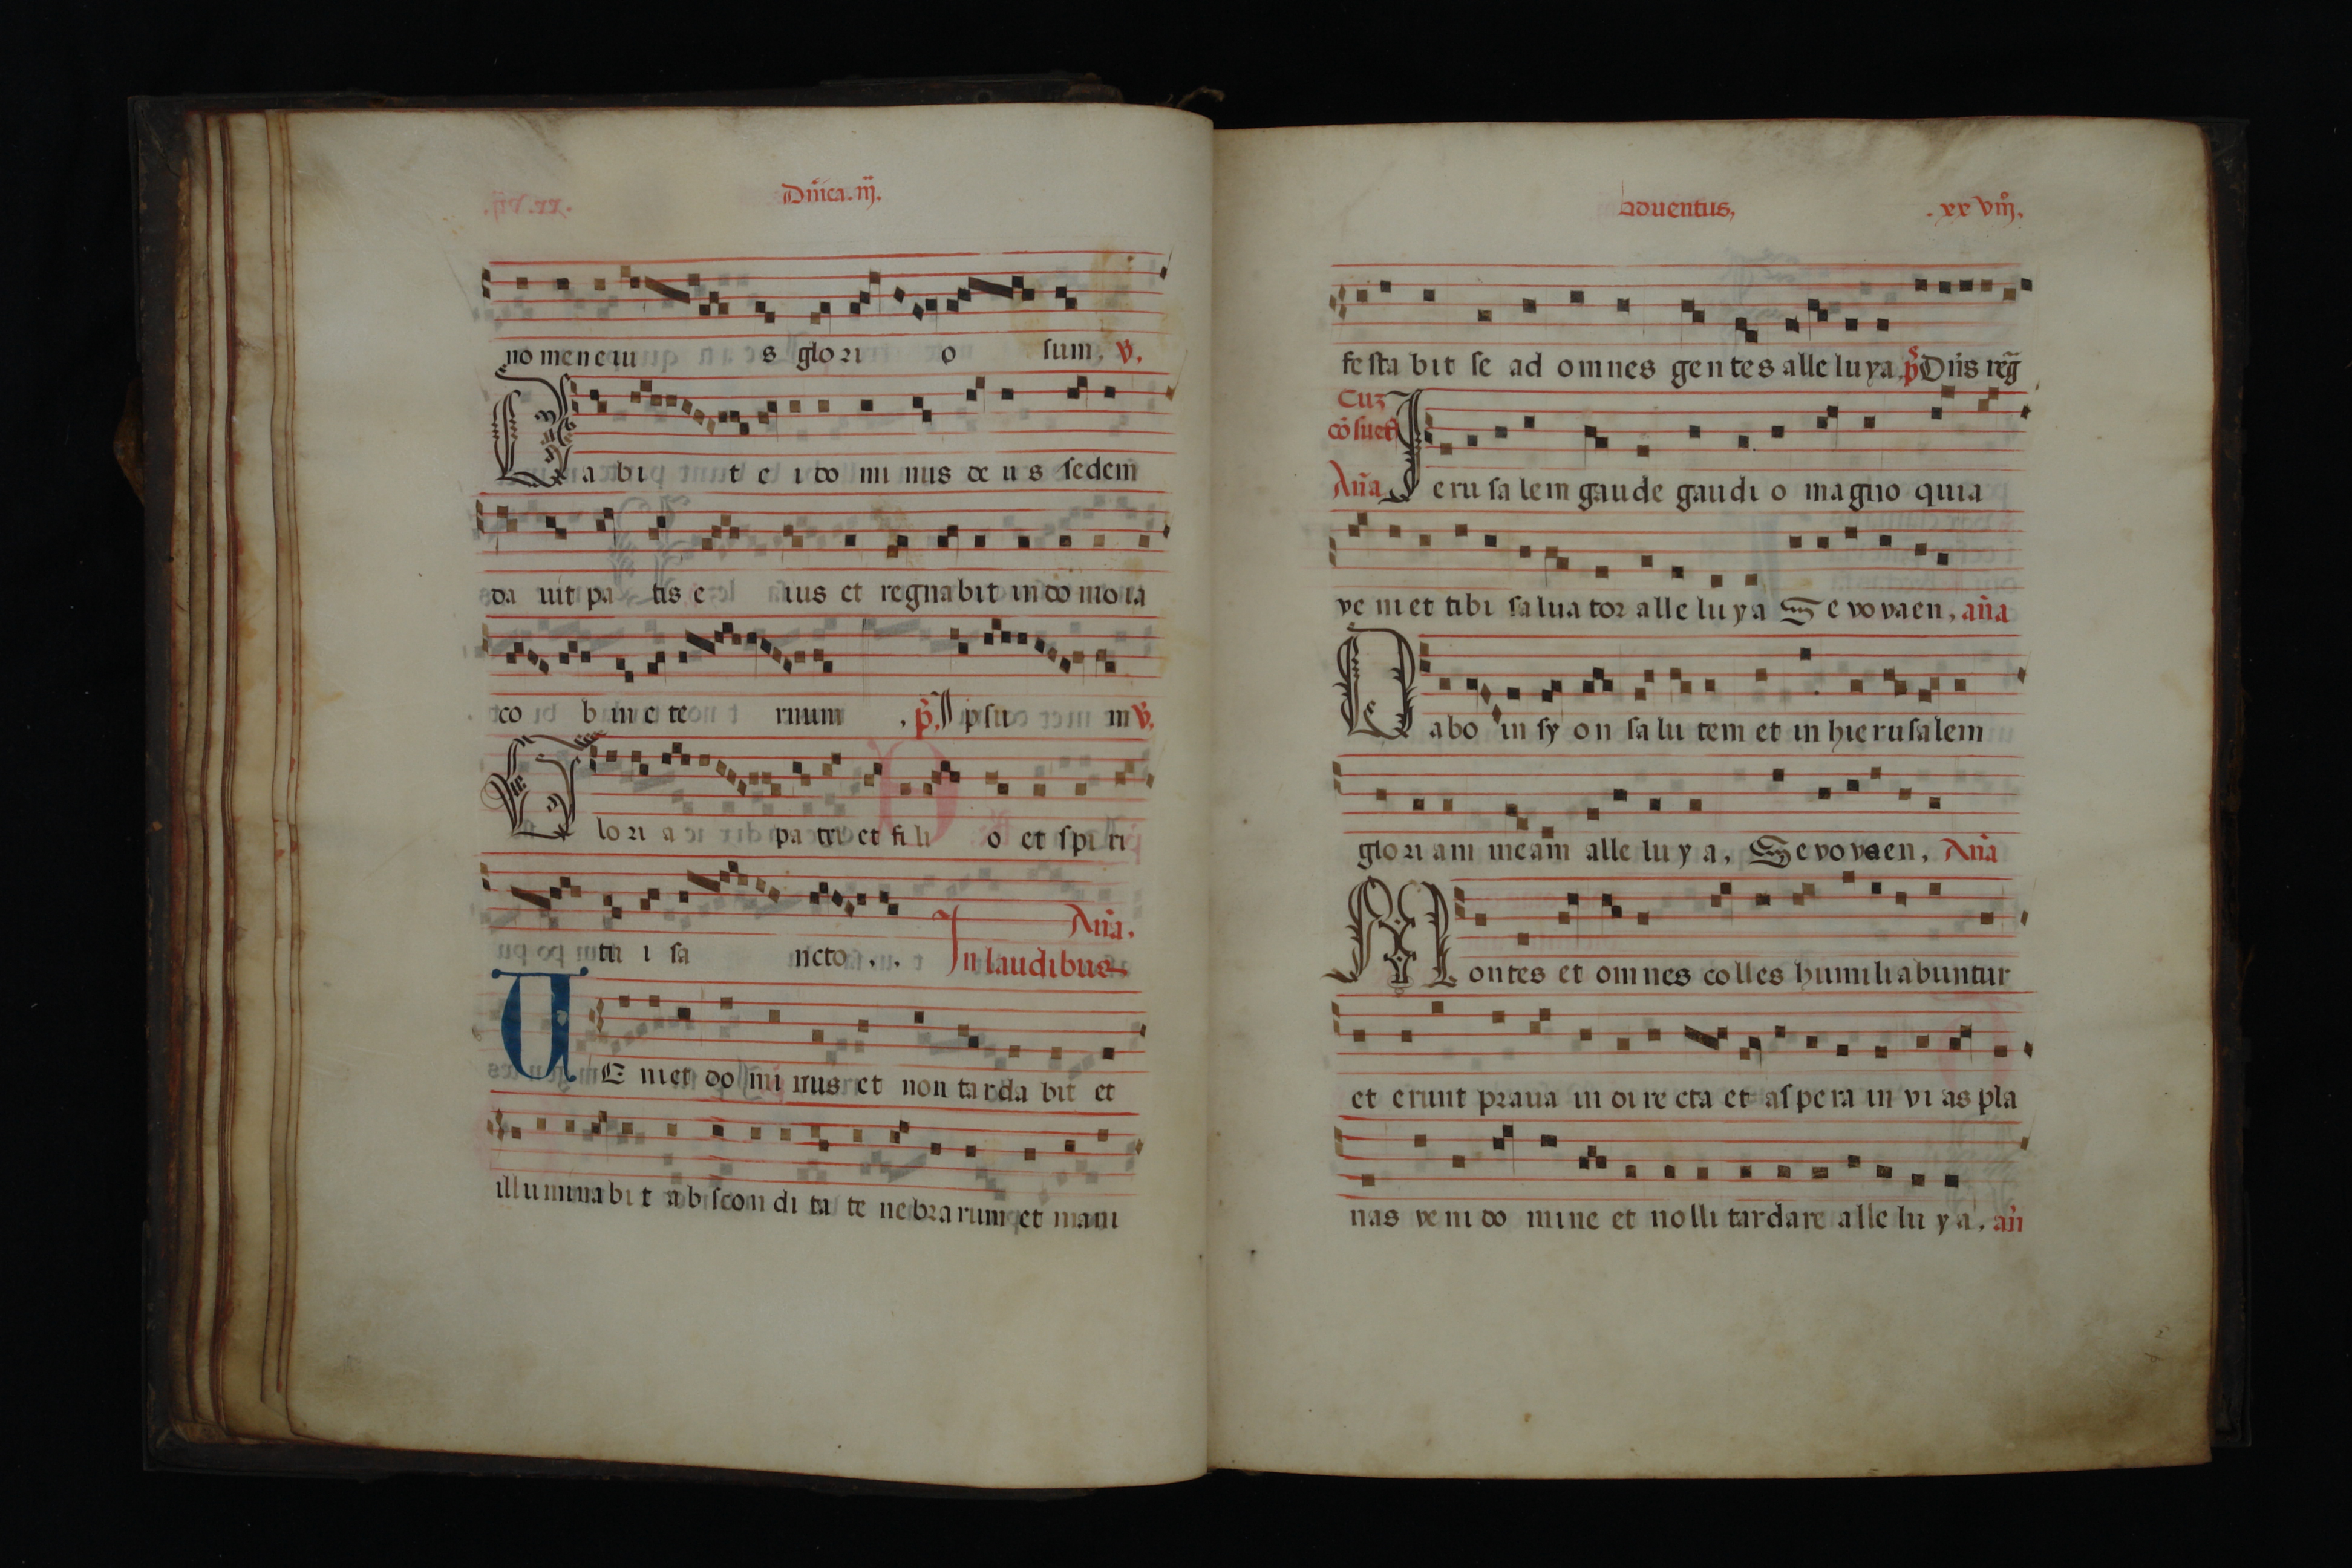 Dñica. iij.
no men eiu s glori o sum, v̄.
Dabi t e i do mi nus de us sedem
da uit pa tis e ius et regnabit in do mo ia
co b in e te rnum, p̄. Ipsu m v̄.
Glori a pa tri et fili o et spi ri
tu i sa ncto . . Añа.
In laudibus
UE niet do mi nus et non tarda bit et
illuminabit abscon di ta te nebrarum et mani
Aduentus, .xx viij.
festa bit se ad omnes gentes alleluya. p̄s Dñs reg̃
Cuz
cõsuet̃
Añа Ierusalem gaude gaudi o magno quia
ve niet tibi saluator alleluya Sevovaen, añа
Dabo in syon salutem et in hierusalem
gloriam meam alleluya, Sevovaen, Añа
Montes et omnes colles humiliabuntur
et erunt praua in directa et aspera in vi as pla
nas veni do mine et nolli tardare alleluya, añ